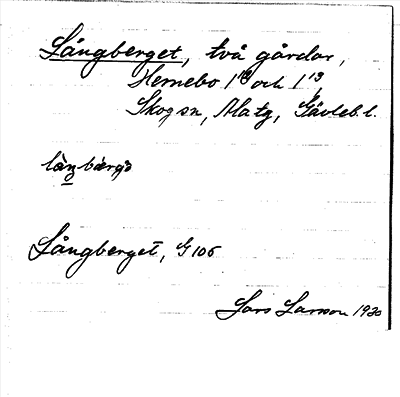 Långberget, två gårdar,
Hemebo 1¹² och 1¹³,
Skog sn, Ala tg, Gävleb. l.
Långberget, G 106
Lars Larsson 1930